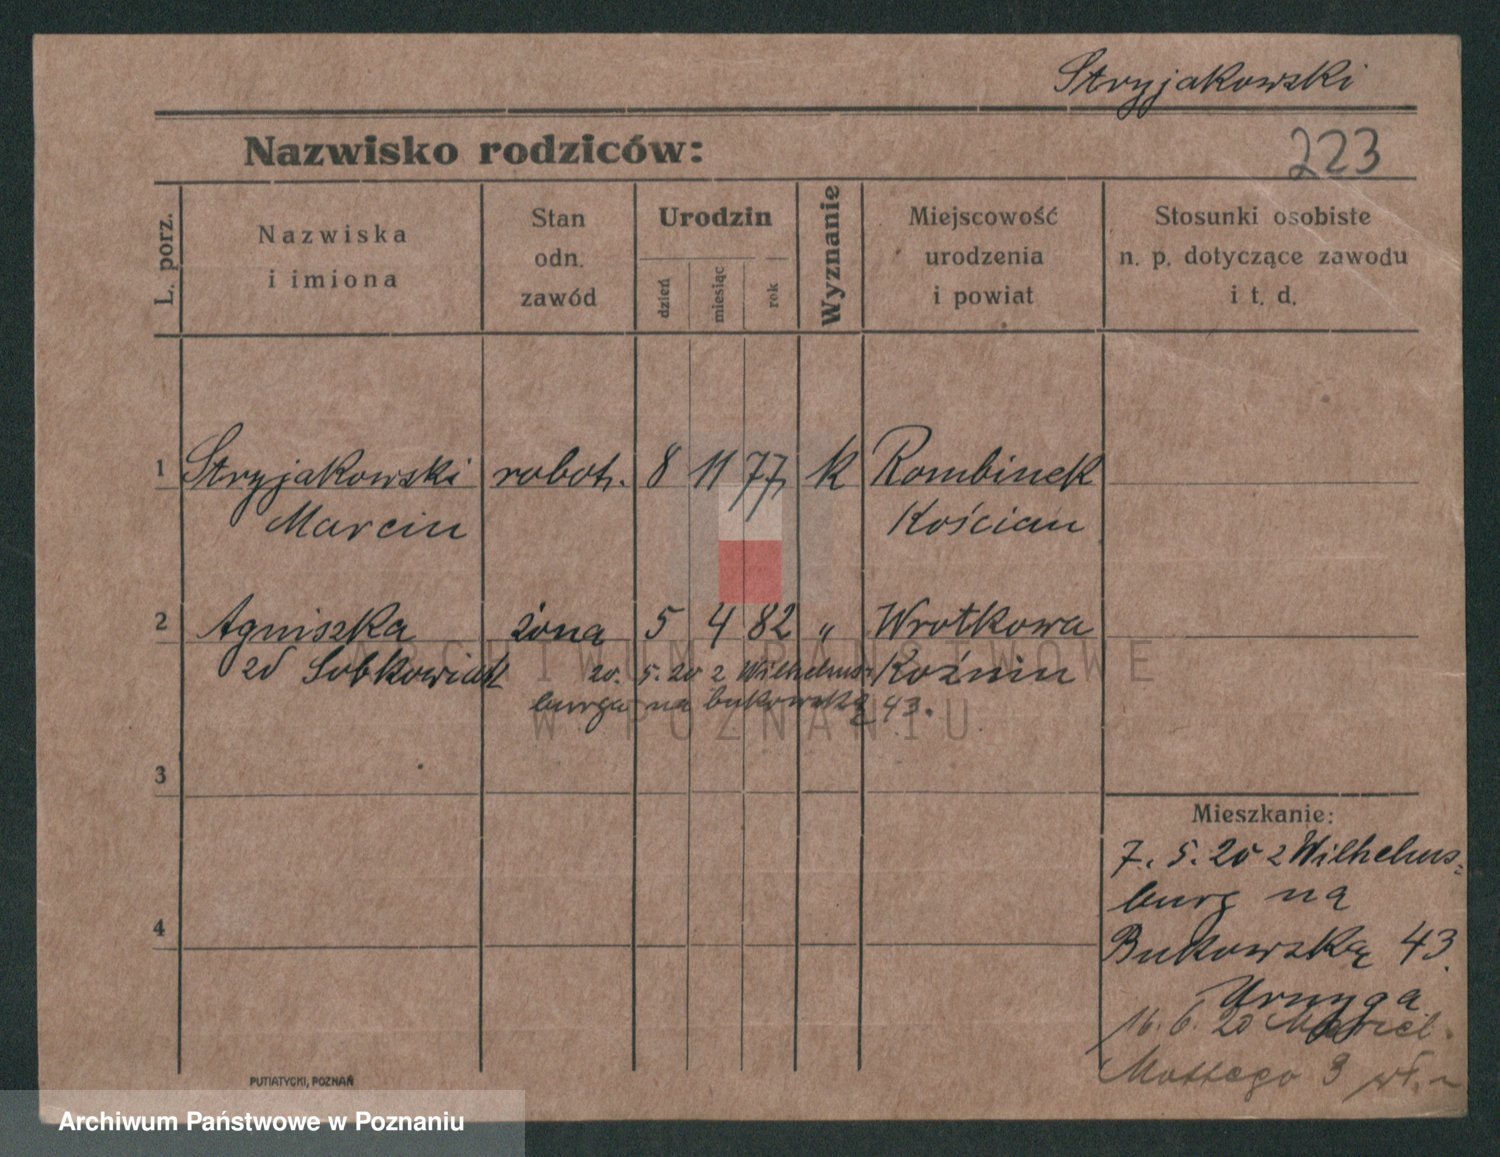 Stryjakowski
Nazwisko rodziców:
223
L. porz.
Nazwiska
i imiona
Stan
odn.
zawód
Urodzin
dzień
miesiąc
rok
Wyznanie
Miejscowość
urodzenia
i powiat
Stosunki osobiste
n. p. dotyczące zawodu
i t. d.
1 Stryjakowski robotn. 8 11 77 k Rombinek
Marcin Kościan
2 Agniszka żona 5 4 82 „ Wrotkowa
zd Sobkowiak Koźmin
20. 5. 20 z Wilhelms-
burga na bukowską 43.
3
4
Mieszkanie:
7. 5. 20 z Wilhelms-
burg na
Bukowską 43.
16. 6. 20
Mottego 3
PUTIATYCKI, POZNAŃ
ARCHIWUM PAŃSTWOWE
W POZNANIU
Archiwum Państwowe w Poznaniu